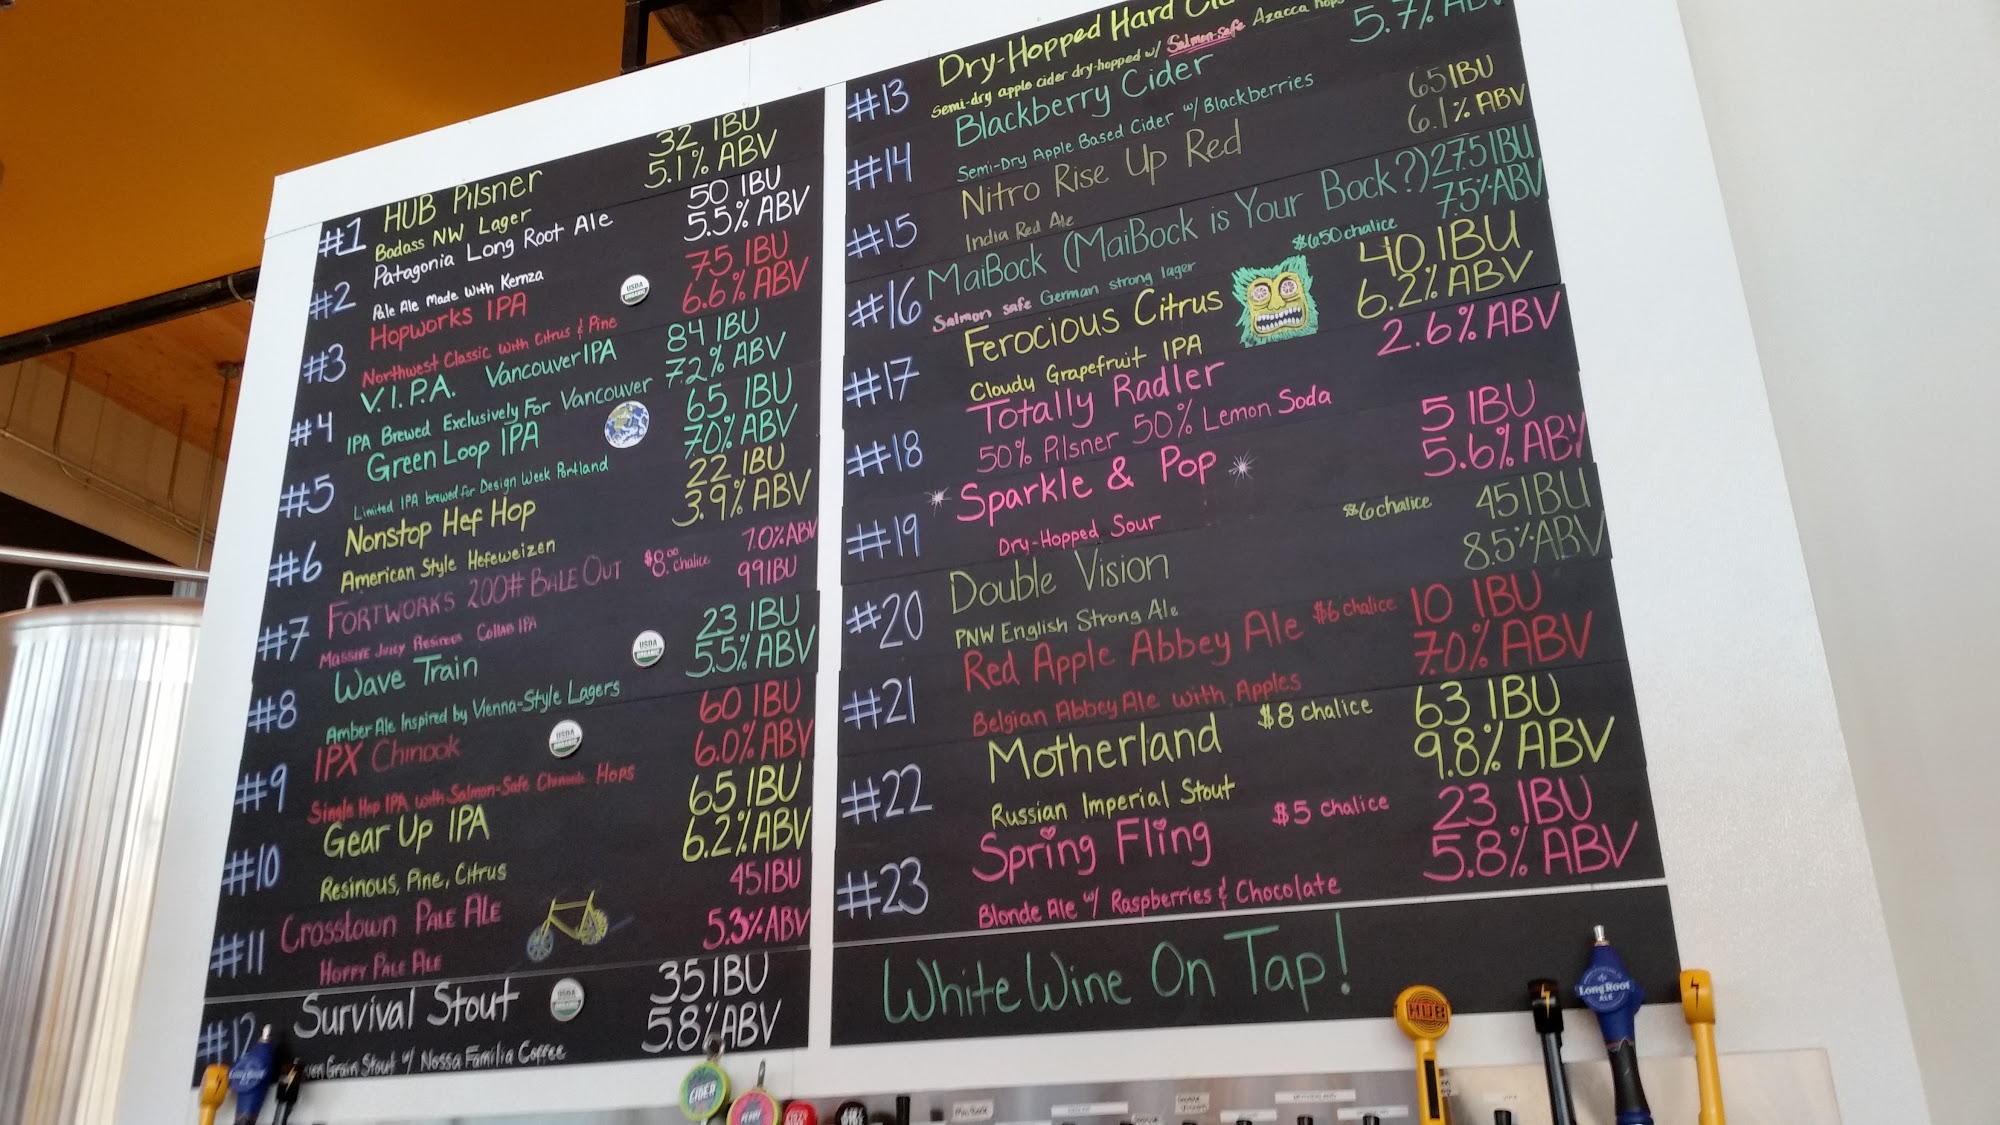 #1 HUB Pilsner 32 IBU
Badass NW Lager 5.1% ABV
#2 Patagonia Long Root Ale 50 IBU
Pale Ale Made With Kernza 5.5% ABV
#3 Hopworks IPA USDA ORGANIC 75 IBU
Northwest Classic with Citrus & Pine 6.6% ABV
#4 V.I.P.A. Vancouver IPA 84 IBU
IPA Brewed Exclusively For Vancouver 7.2% ABV
#5 Green Loop IPA 65 IBU
Limited IPA brewed for Design Week Portland 7.0% ABV
#6 Nonstop Hef Hop 22 IBU
American Style Hefeweizen 3.9% ABV
#7 FORTWORKS 200# BALE OUT $8.00 chalice 7.0% ABV
MASSIVE JUICY RESINOUS COLLAB IPA 99 IBU
#8 Wave Train USDA ORGANIC 23 IBU
Amber Ale Inspired by Vienna-Style Lagers 5.5% ABV
#9 IPX Chinook USDA ORGANIC 60 IBU
Single Hop IPA with Salmon-Safe Chinook Hops 6.0% ABV
#10 Gear Up IPA 65 IBU
Resinous, Pine, Citrus 6.2% ABV
#11 Crosstown PALE ALE 45 IBU
HOPPY PALE ALE 5.3% ABV
#12 Survival Stout USDA ORGANIC 35 IBU
Grain Stout w/ Nossa Familia Coffee 5.8% ABV
#13 Dry-Hopped Hard
Semi-dry apple cider dry-hopped w/ Salmon-Safe Azacca hops 5.7% ABV
#14 Blackberry Cider
Semi-Dry Apple Based Cider w/ Blackberries
#15 Nitro Rise Up Red 65 IBU
India Red Ale 6.1% ABV
#16 MaiBock (MaiBock is Your Bock?) 27.5 IBU
Salmon safe German strong lager $6.50 chalice 7.5% ABV
#17 Ferocious Citrus 40 IBU
Cloudy Grapefruit IPA 6.2% ABV
#18 Totally Radler 2.6% ABV
50% Pilsner 50% Lemon Soda
#19 Sparkle & Pop 5 IBU
Dry-Hopped Sour 5.6% ABV
#20 Double Vision $6 chalice 45 IBU
PNW English Strong Ale 8.5% ABV
#21 Red Apple Abbey Ale $6 chalice 10 IBU
Belgian Abbey Ale with Apples 7.0% ABV
#22 Motherland $8 chalice 63 IBU
Russian Imperial Stout 9.8% ABV
#23 Spring Fling $5 chalice 23 IBU
Blonde Ale w/ Raspberries & Chocolate 5.8% ABV
White Wine On Tap!
HUB
Long Root
ALE
Long Root
CIDER